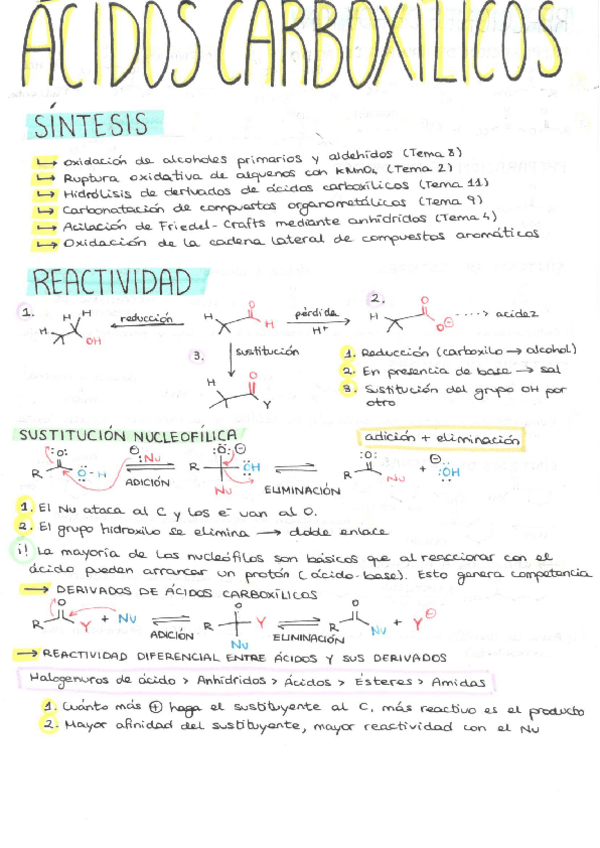 ÁCIDOS CARBOXÍLICOS
SÍNTESIS
↳ Oxidación de alcoholes primarios y aldehidos (Tema 8)
↳ Ruptura oxidativa de alquenos con KMnO4 (Tema 2)
↳ Hidrólisis de derivados de ácidos carboxílicos (Tema 11)
↳ Carbonatación de compuestos organometálicos (Tema 9)
↳ Acilación de Friedel-Crafts mediante anhídridos (Tema 4)
↳ Oxidación de la cadena lateral de compuestos aromáticos
REACTIVIDAD
1. H H H OH reducción H O H pérdida H+ 2. H O O⊖ ····> acidez
3. sustitución
H O Y
1. Reducción (carboxilo → alcohol)
2. En presencia de base → sal
3. Sustitución del grupo OH por
otro
SUSTITUCIÓN NUCLEOFÍLICA
adición + eliminación
:O: R Ö-H ⊖:Nu ADICIÓN :Ö:⊖ R ÖH Nu ELIMINACIÓN :O: R Nu + ⊖:ÖH
1. El Nu ataca al C y los e⁻ van al O.
2. El grupo hidroxilo se elimina → doble enlace
¡! La mayoría de los nucleófilos son básicos que al reaccionar con el
ácido pueden arrancar un protón (ácido-base). Esto genera competencia
→ DERIVADOS DE ÁCIDOS CARBOXÍLICOS
O R Y + Nu ADICIÓN O R Y Nu ELIMINACIÓN O R Nu + Y⊖
→ REACTIVIDAD DIFERENCIAL ENTRE ÁCIDOS Y SUS DERIVADOS
Halogenuros de ácido > Anhídridos > Ácidos > Ésteres > Amidas
1. Cuánto más ⊕ haga el sustituyente al C, más reactivo es el producto
2. Mayor afinidad del sustituyente, mayor reactividad con el Nu